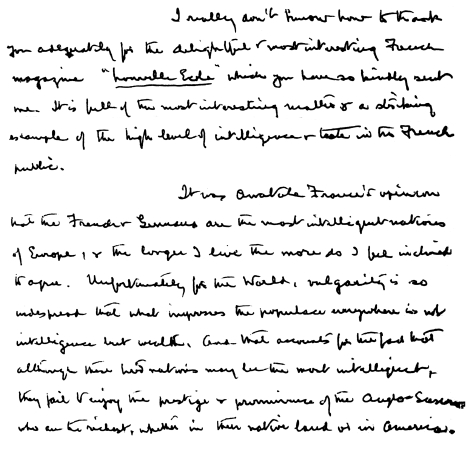 I really don't know how to thank
you adequately for the delightful & most interesting French
magazine "Nouvelle Ecole" which you have so kindly sent
me. It is full of the most interesting matter & a striking
example of the high level of intelligence & taste in the French
public.
It was Anatole France's opinion
that the French & Germans are the most intelligent nations
of Europe, & the longer I live the more do I feel inclined
to agree. Unfortunately for the World, vulgarity is so
widespread that what impresses the populace everywhere is not
intelligence but wealth. And that accounts for the fact that
although these two nations may be the most intelligent,
they fail to enjoy the prestige & prominence of the Anglo-Saxons
who are the richest, whether in their native land or in America.